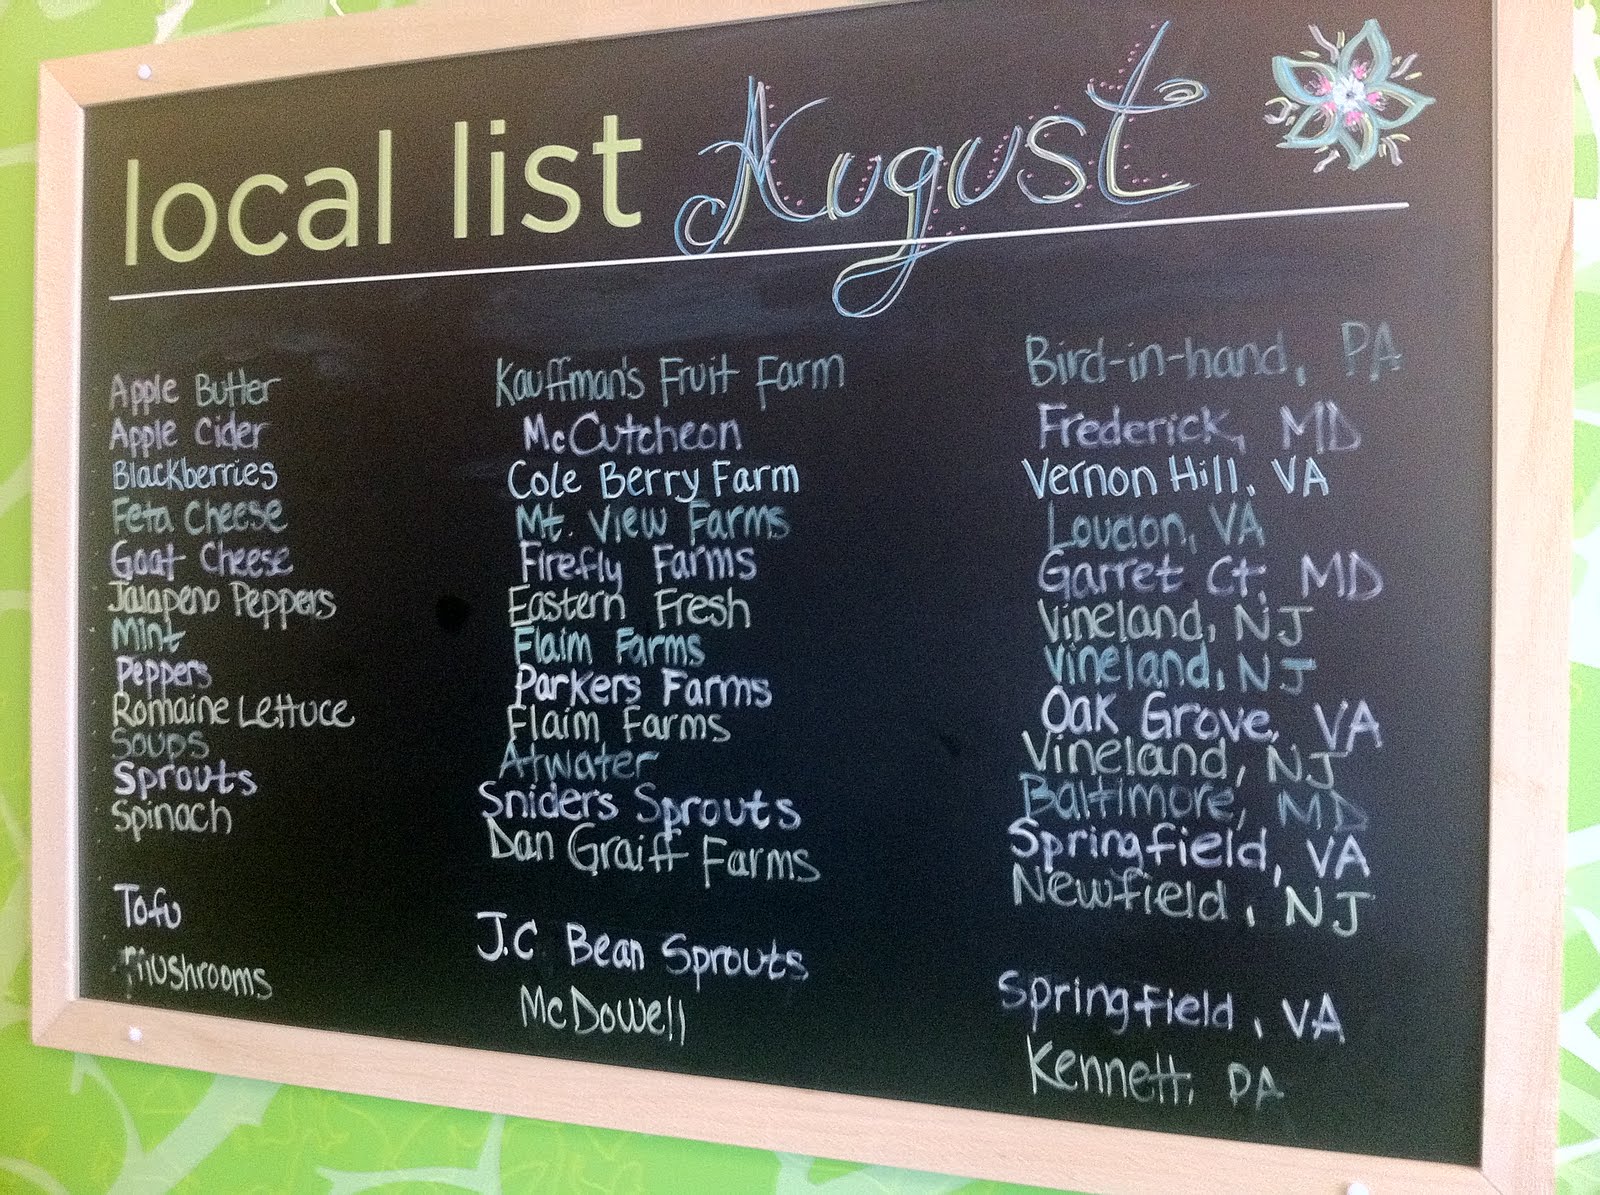 local list August
Apple Butter Kauffman's Fruit Farm Bird-in-hand, PA
Apple Cider McCutcheon Frederick, MD
Blackberries Cole Berry Farm Vernon Hill, VA
Feta Cheese Mt. View Farms Loudon, VA
Goat Cheese Firefly Farms Garret Ct. MD
Jalapeno Peppers Eastern Fresh Vineland, NJ
Mint Flaim Farms Vineland, NJ
Peppers Parkers Farms Oak Grove, VA
Romaine Lettuce Flaim Farms Vineland, NJ
Soups Atwater Baltimore, MD
Sprouts Sniders Sprouts Springfield, VA
Spinach Dan Graiff Farms Newfield, NJ
Tofu J.C Bean Sprouts Springfield, VA
Mushrooms McDowell Kennett, PA